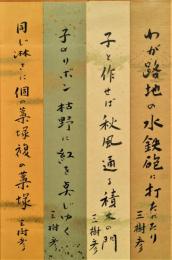 わが路地の水鉄砲に打たれたり
三樹彦
子と作せば秋風通る積木の門
三樹彦
子のリボン枯野に紅を点じゆく
三樹彦
同じ淋しさに個の藁塚複の藁塚
三樹彦